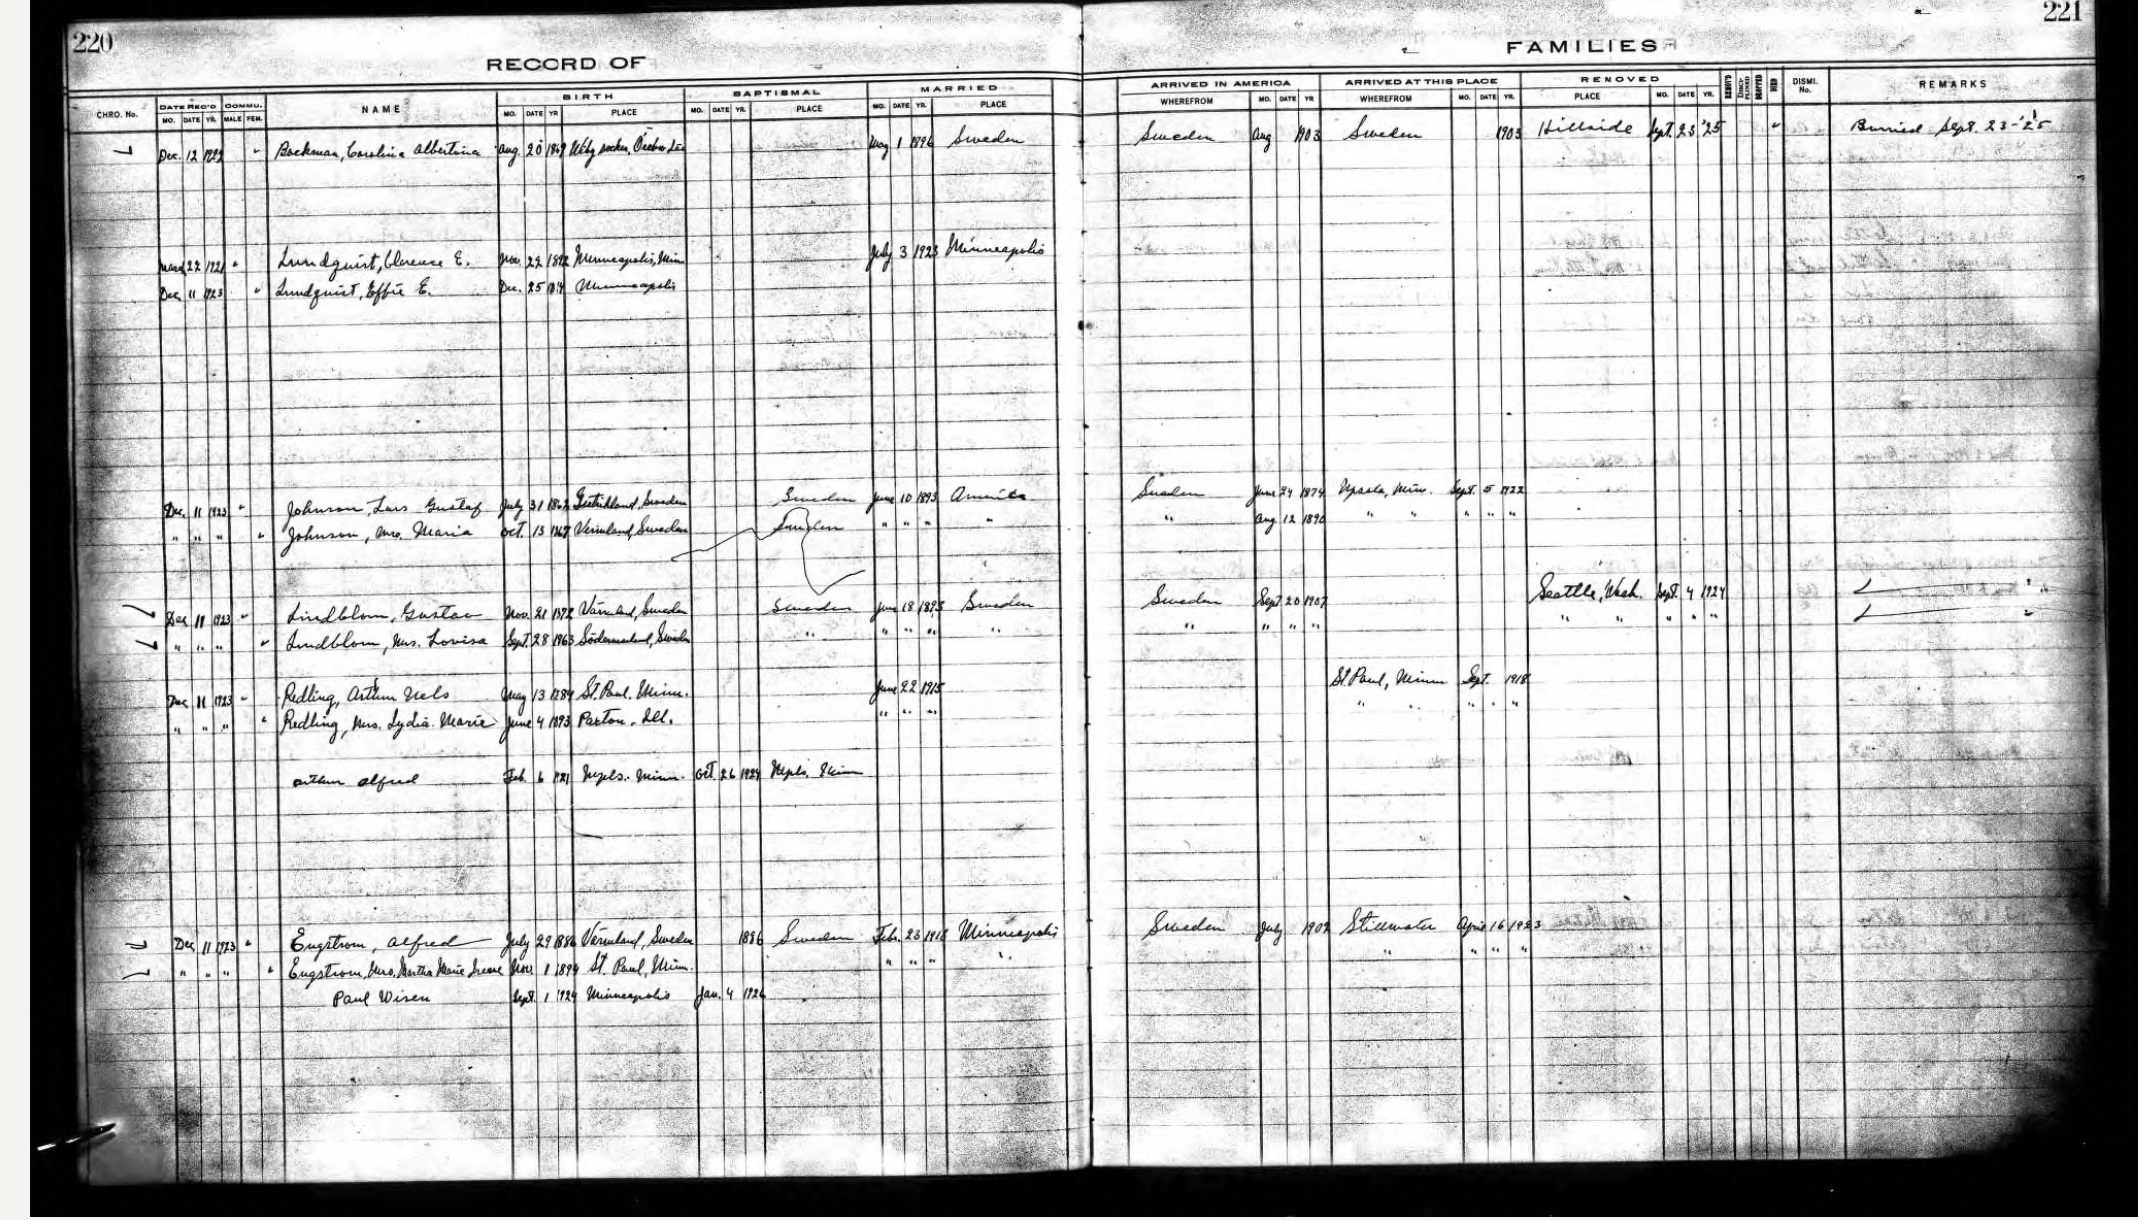 220
221
RECORD OF
FAMILIES
CHRO. No. DATE REC'D COMMU. NAME BIRTH BAPTISMAL MARRIED ARRIVED IN AMERICA ARRIVED AT THIS PLACE REMOVED DISMI. No. REMARKS
MO. DATE YR. MALE FEM. MO. DATE YR PLACE MO. DATE YR. PLACE MO. DATE YR. PLACE WHEREFROM MO. DATE YR WHEREFROM MO. DATE YR. PLACE MO. DATE YR.
Dec. 12 1922 " Backman, Carolina Albertina Aug. 20 1869 socken, Örebro Län May 1 1896 Sweden Sweden Aug 1903 Sweden 1903 Hillside Sept. 23 '25 " Burried Sept. 23-'25
March 22 1921 " Lundquist, Clarence E. Nov. 22 1892 Minneapolis, Minn July 3 1923 Minneapolis
Dec. 11 1923 " Lundquist, Effie E. Dec. 25 Minneapolis
Dec. 11 1923 " Johnson, Lars Gustaf July 31 1862 Gestrikland, Sweden Sweden June 10 1893 America Sweden June 24 1874 Upsala, Minn. Sept. 5 1922
" " " " Johnson, Mrs. Maria Oct. 13 1867 Vermland, Sweden Sweden " " " " " Aug 12 1890 " " " " "
Dec 11 1923 " Lindblom, Gustav Nov. 21 1872 Värmland, Sweden Sweden June 18 1893 Sweden Sweden Sept 20 1907 Seattle, Wash. Sept. 4 1924
" " " " Lindblom, Mrs. Lovisa Sept. 28 1863 Södermanland, Sweden " " " " " " " " " " " " " "
Dec 11 1923 " Redling, Arthur Nels May 13 1889 St. Paul, Minn. June 22 1915 St Paul, Minn Sept. 1918
" " " " Redling, Mrs. Lydia Marie June 4 1893 Paxton, Ill. " " " " " " " "
Arthur Alfred Feb. 6 1921 Mpls. Minn. Oct. 26 1924 Mpls. Minn
Dec 11 1923 " Engstrom, Alfred July 29 1886 Värmland, Sweden 1886 Sweden Feb. 23 1918 Minneapolis Sweden July 1902 Stillwater April 16 1923
" " " " Engstrom, Mrs. Martha Marie Irene Nov. 1 1894 St. Paul, Minn. " " " " " " " "
Paul Wisen Sept. 1 1924 Minneapolis Jan. 4 1926